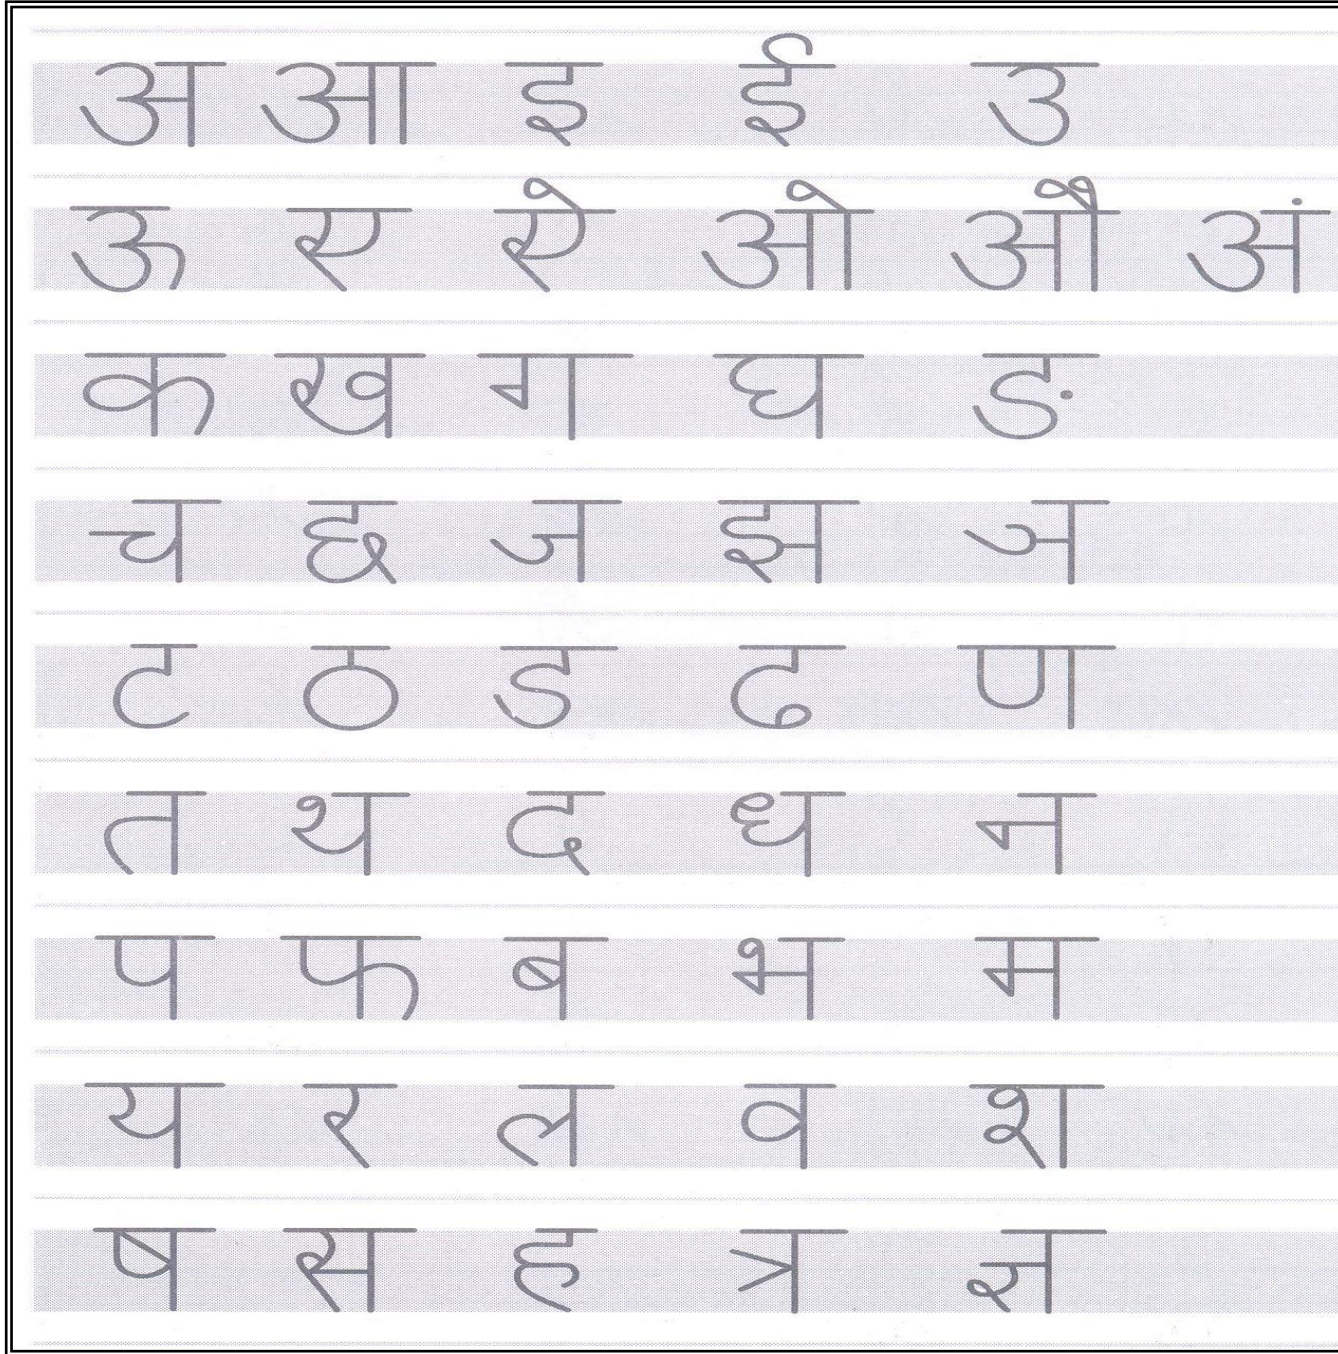 अ आ इ ई उ
ऊ ए ऐ ओ औ अं
क ख ग घ ङ
च छ ज झ ञ
ट ठ ड ढ ण
त थ द ध न
प फ ब भ म
य र ल व श
ष स ह त्र ज्ञ